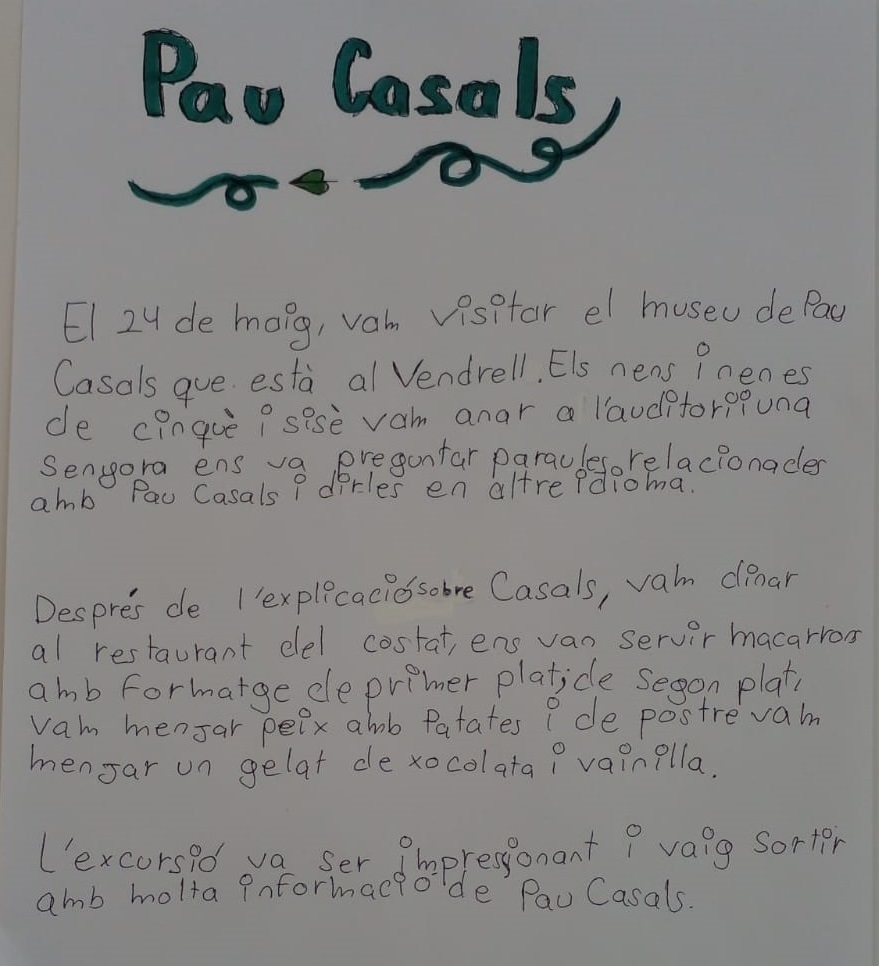 Pau Casals
El 24 de maig, vam visitar el museu de Pau
Casals que està al Vendrell. Els nens i nenes
de cinquè i sisè vam anar a l'auditori i una
senyora ens va preguntar paraules relacionades
amb Pau Casals i dirles en altre idioma.
Després de l'explicació sobre Casals, vam dinar
al restaurant del costat, ens van servir macarrons
amb formatge de primer plat; de segon plat,
vam menjar peix amb patates i de postre vam
menjar un gelat de xocolata i vainilla.
L'excursió va ser impresionant i vaig sortir
amb molta informació de Pau Casals.